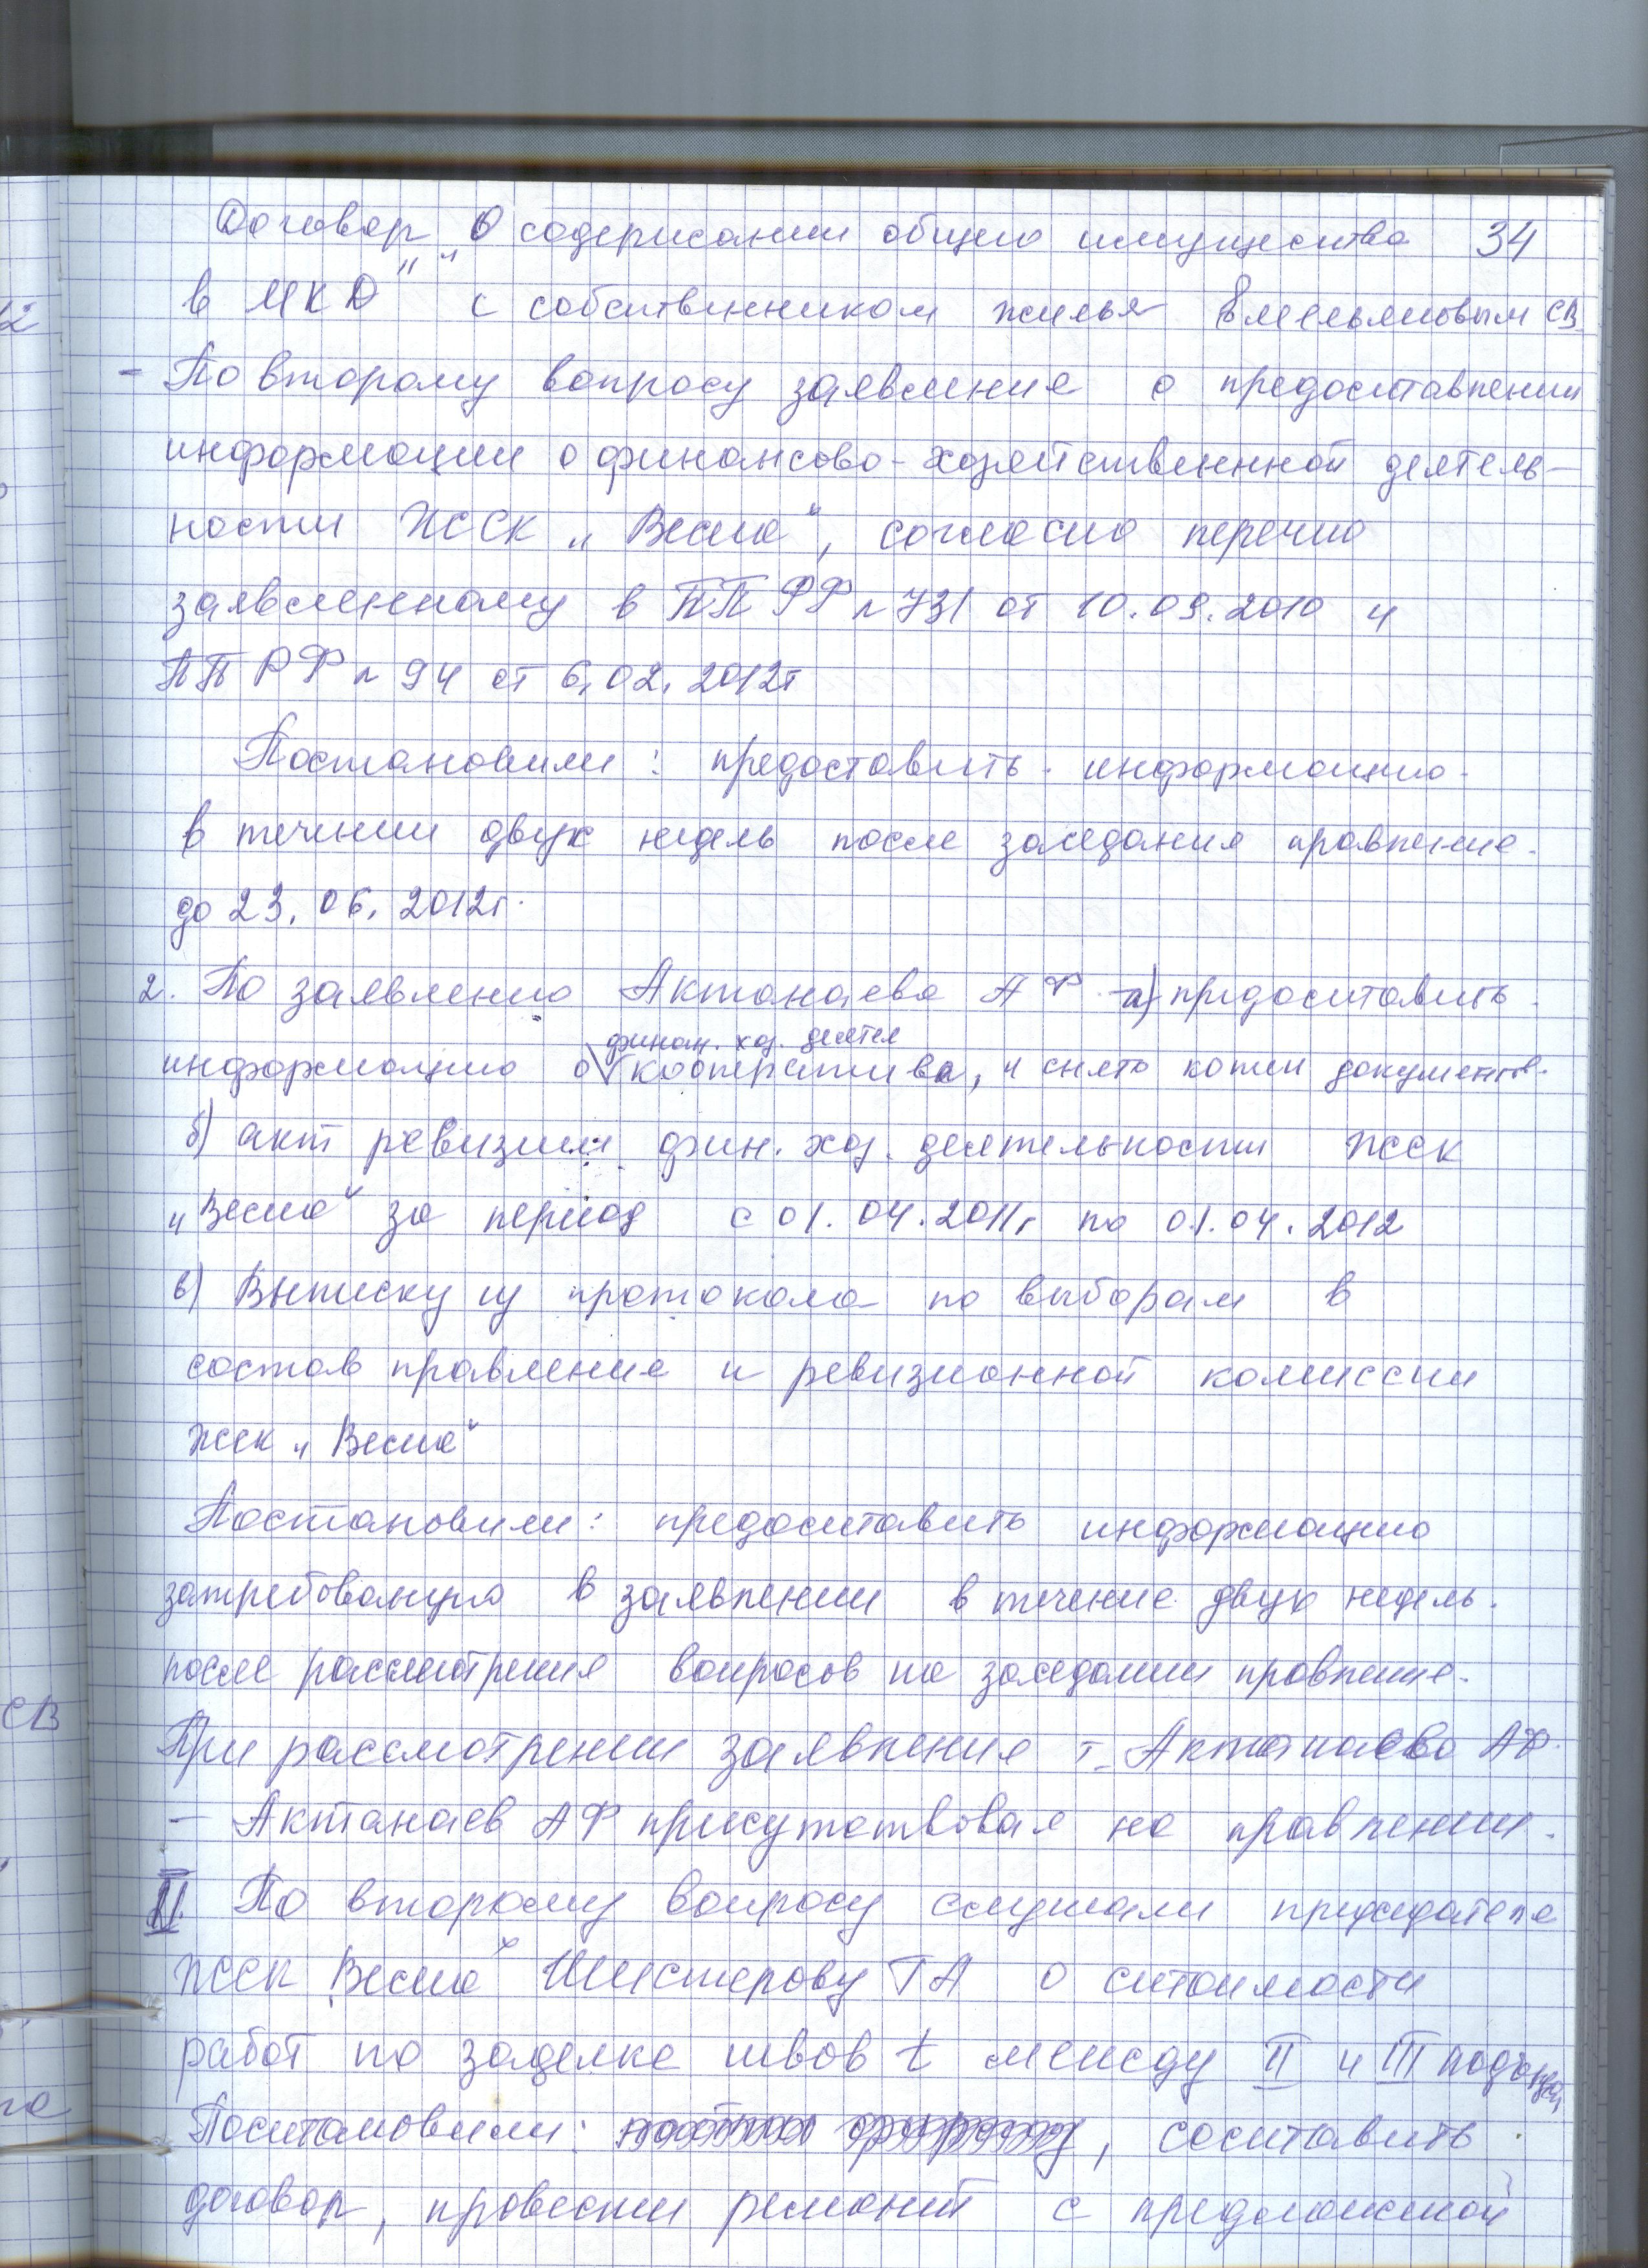 Договор „О содержании общего имущества 34
в МКД" с собственником жилья Емельяновым СВ
- По второму вопросу заявления о предоставлении
информации о финансово-хозяйственной деятель-
ности ЖССК „Весна", согласно перечню
заявленному в ПП РФ № 731 от 10.09.2010 и
ПП РФ № 94 от 6.02.2012г
Постановили: предоставить информацию
в течении двух недель после заседания правления.
до 23.06.2012г.
2. По заявлению Актанаева АФ а) предоставить
финан. хоз. деятел
информацию о кооператива, и снять копии документов.
б) акт ревизии фин. хоз. деятельности ЖССК
„Весна" за период с 01.04.2011г по 01.04.2012
в) Выписку из протокола по выборам в
состав правления и ревизионной комиссии
ЖССК „Весна"
Постановили: предоставить информацию
затребованную в заявлении в течение двух недель.
после рассмотрения вопросов на заседании правления.
При рассмотрении заявления т. Актанаева АФ.
- Актанаев АФ присутствовал на правлении.
II. По второму вопросу слушали председателя
ЖССК Весна" Шистерову ТА о стоимости
работ по заделке швов t между II и III подъезд
Постановили: , составить
договор, провести ремонт с предложенной